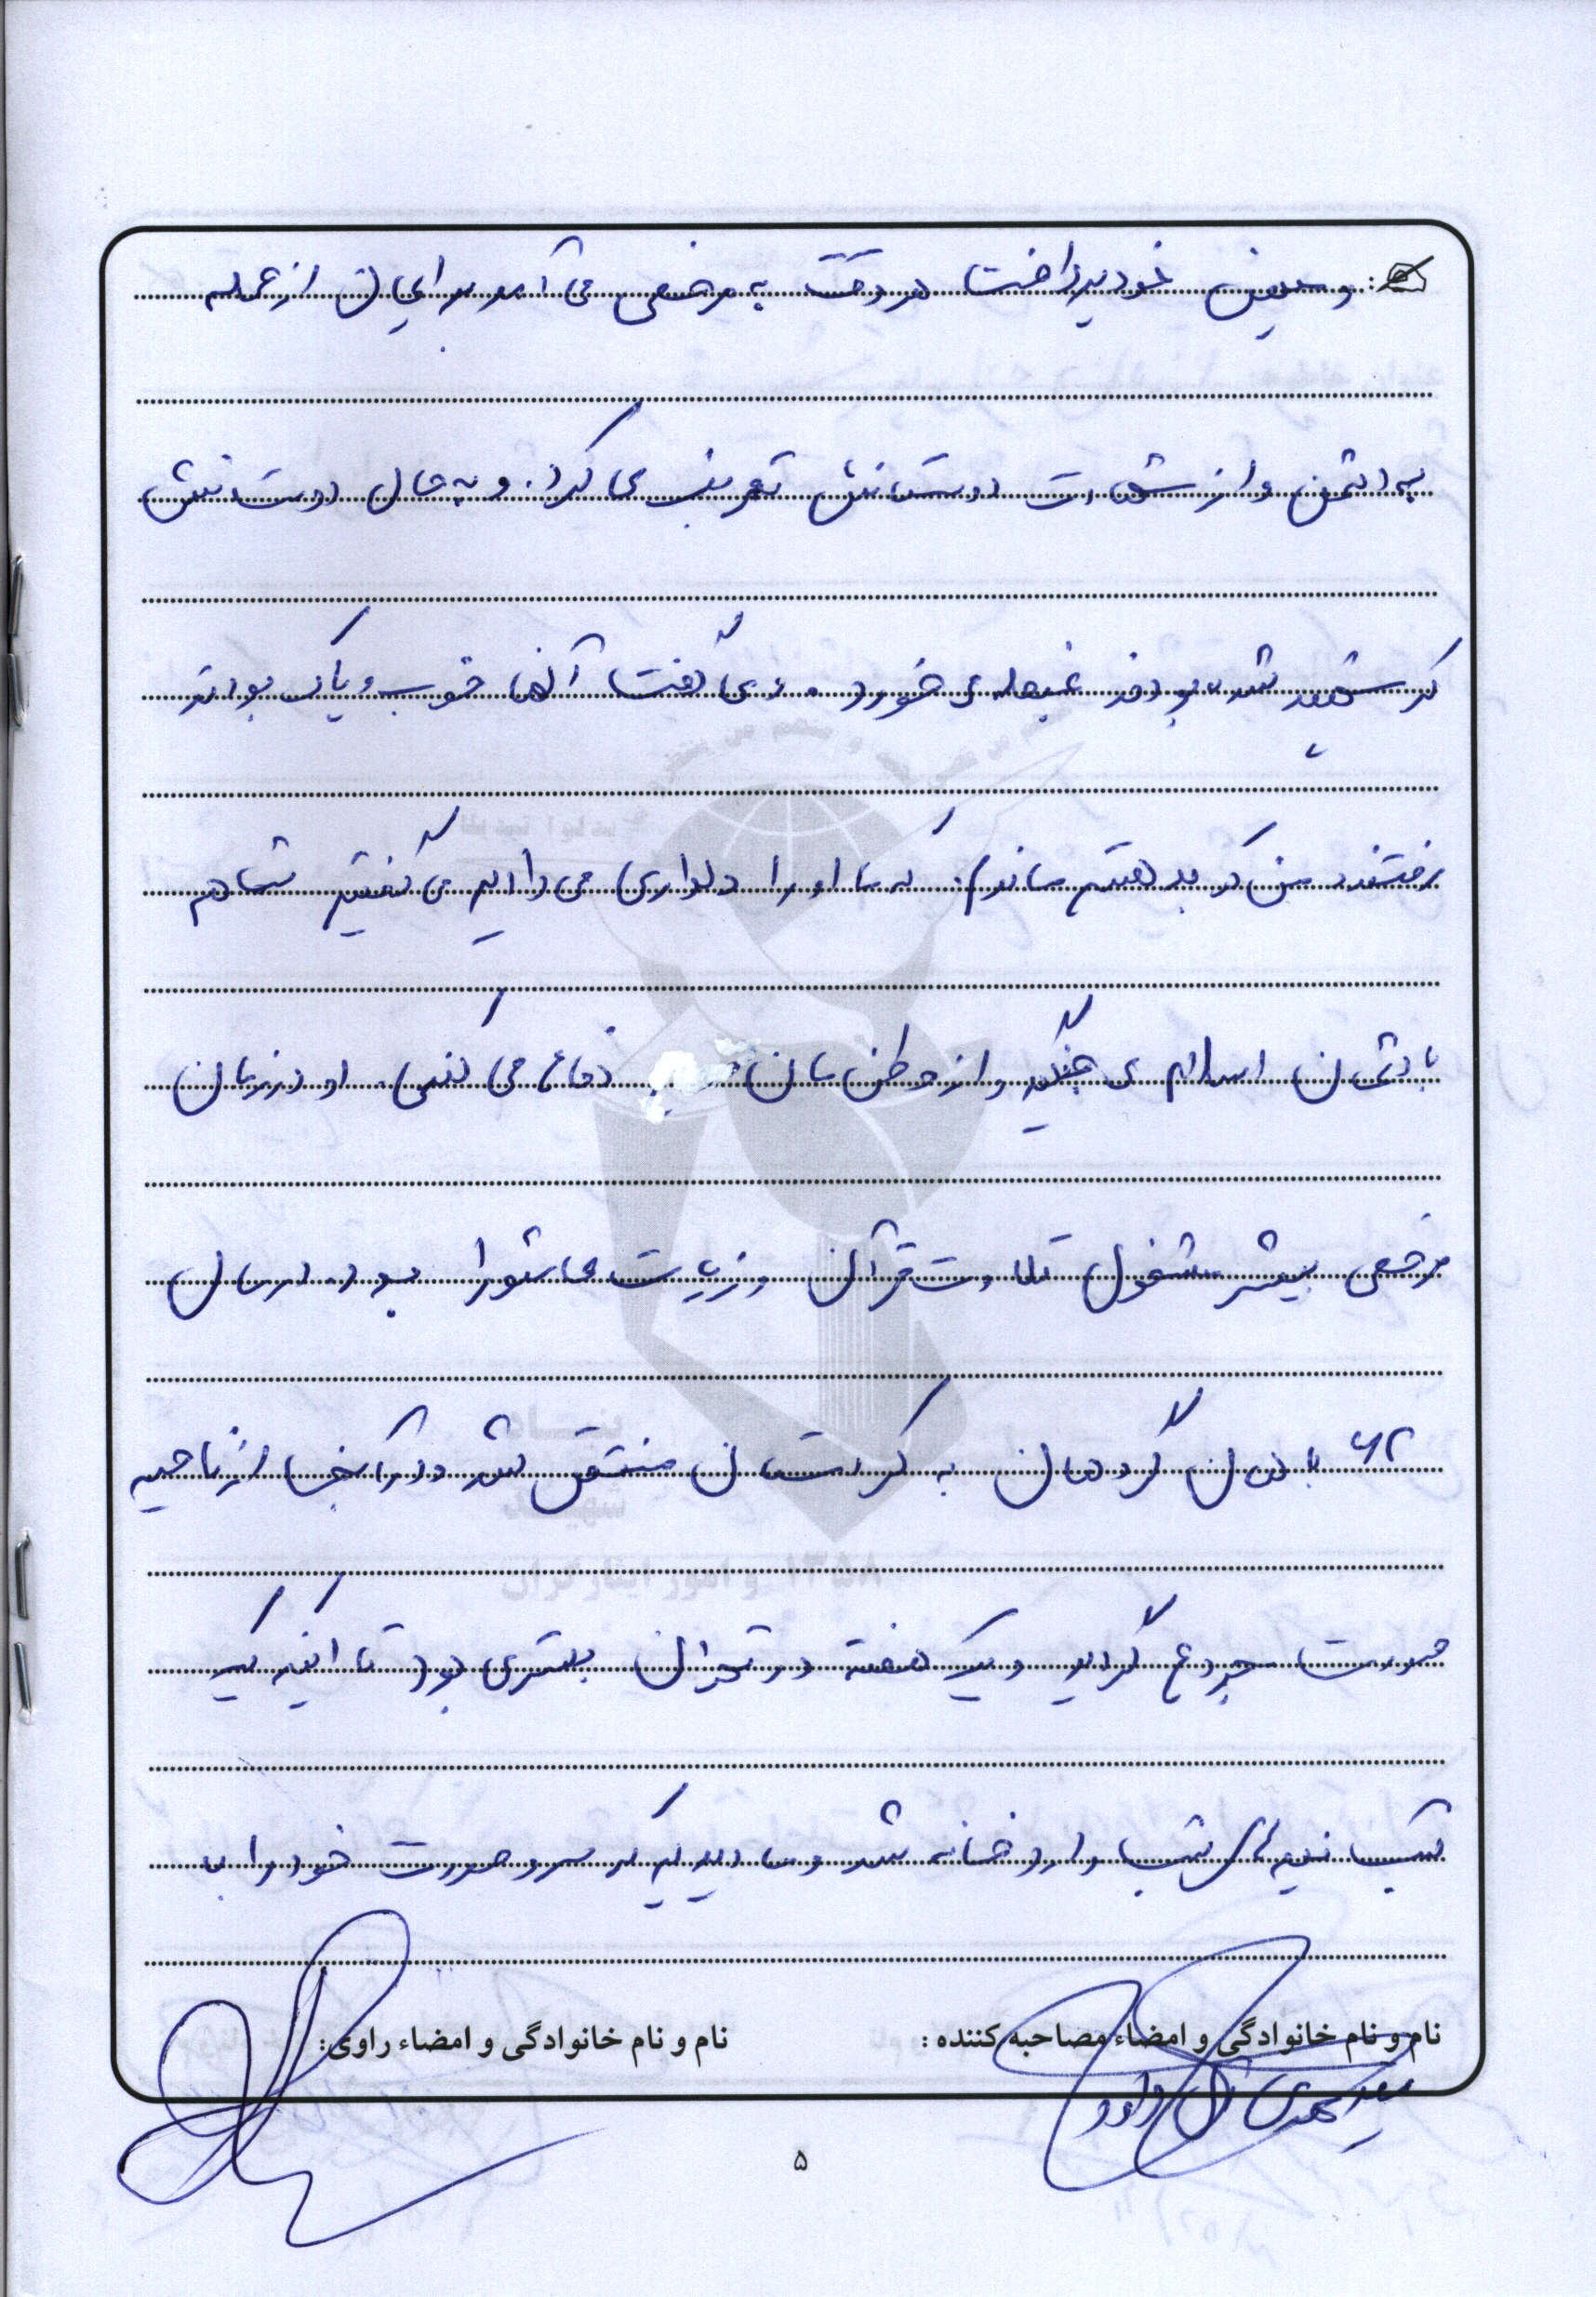 و میهن خود پرداخت هر وقت به مرخصی می آمد برایمان از حمله
به دشمن و از شهادت دوستانش تعریف می کرد. و به حال دوستانش
که شهید شده بودند غبطه می خورد. و می گفت آنها خوب و پاک بودند
رفتند من که بد هستم ماندم. که ما او را دلداری می دادیم می گفتیم شما هم
با دشمنان اسلام می جنگید و از وطن مان دفاع می کنی. او در زمان
مرخصی بیشتر مشغول تلاوت قرآن و زیارت عاشورا بود. در سال
۶۲ با همان گردهان به کردستان منتقل شد و در آنجا از ناحیه
صورت مجروح گردید و یک هفته در تهران بستری بود تا اینکه یک
شب نیمه های شب وارد خانه شد و ما دیدیم که سر و صورت خود را با
نام و نام خانوادگی و امضاء مصاحبه کننده :
نام و نام خانوادگی و امضاء راوی:
۵